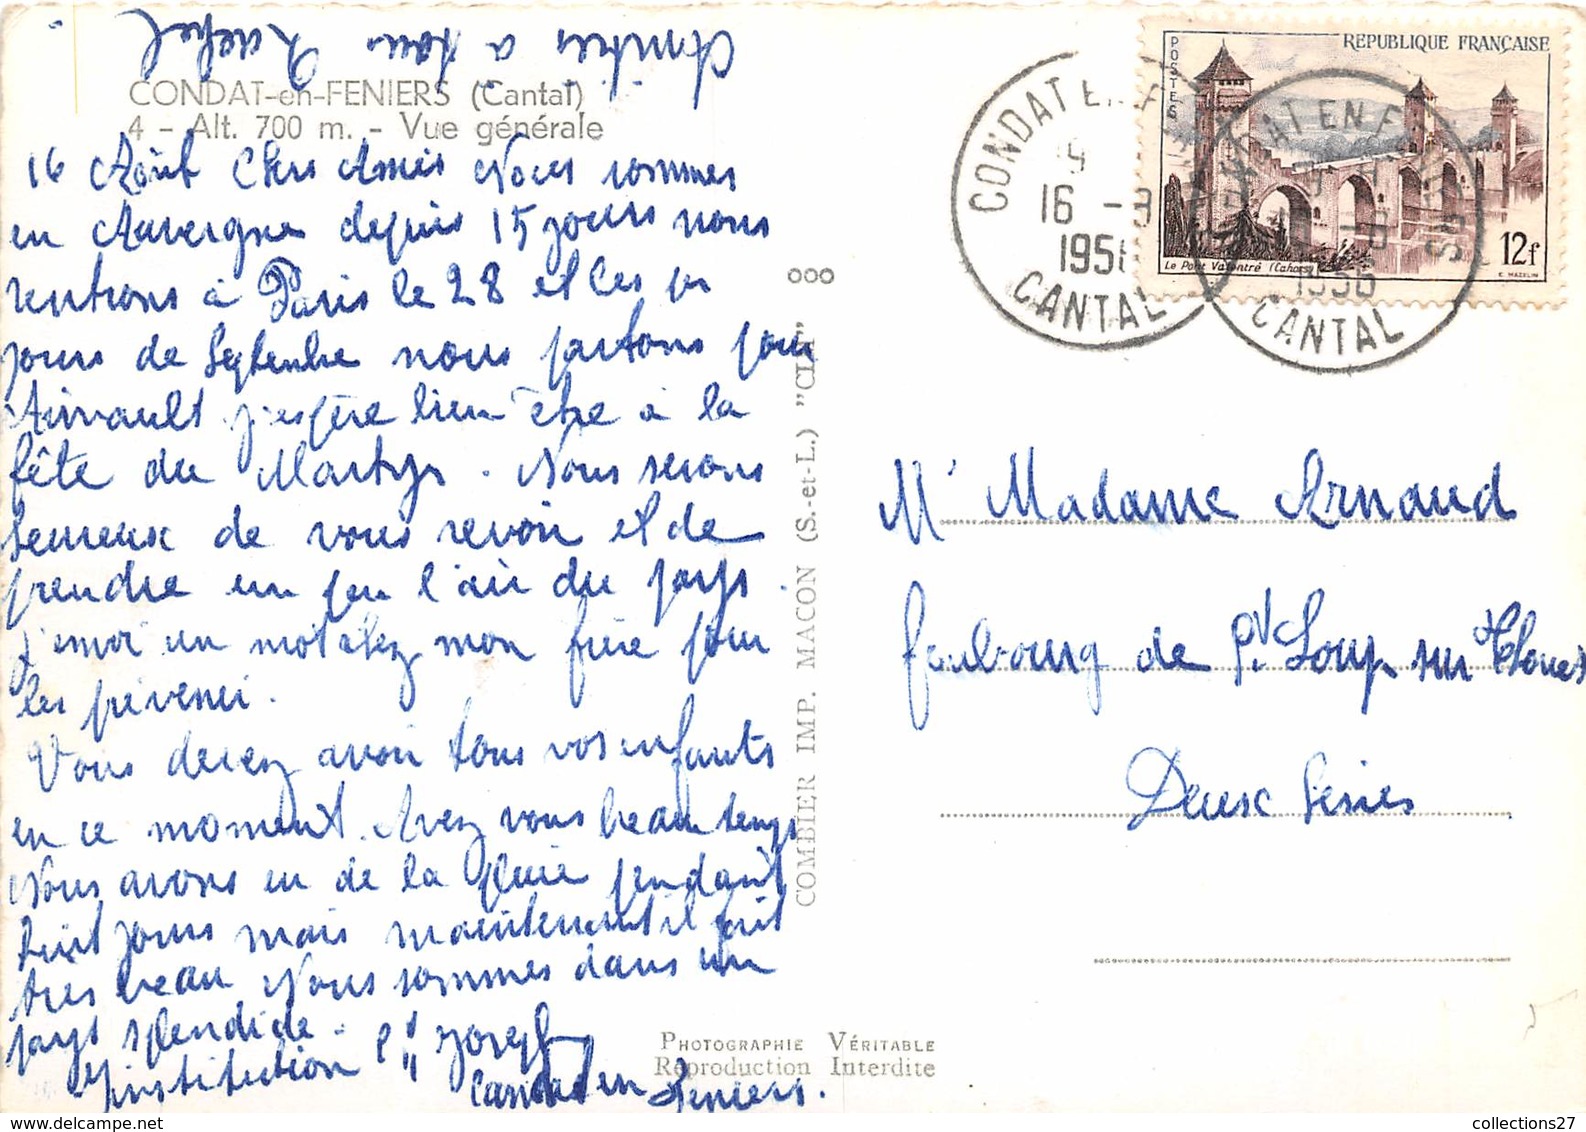 Amitiés à tous Rachel
CONDAT-en-FENIERS (Cantal)
4 - Alt. 700 m. - Vue générale
16 Août Chers Amis Nous sommes
en Auvergne depuis 15 jours nous
rentrons à Paris le 28 et les
jours de Septembre nous partons pour
Airvault j'espère bien être à la
fête du Martyr. Nous serons
heureux de vous revoir et de
prendre un peu l'air du pays.
J'envoi un mot chez mon frère pour
les prévenir.
Vous devez avoir tous vos enfants
en ce moment. Avez vous beau temps
Nous avons eu de la pluie pendant
huit jours mais maintenant il fait
très beau Nous sommes dans un
pays splendide.
Institution St Joseph
Condat en Feniers.
COMBIER IMP. MACON (S.-et-L.) "CIM"
PHOTOGRAPHIE VÉRITABLE
Reproduction Interdite
CONDAT EN F
16 -8
1956
CANTAL
CONDAT EN FENIERS
1956
CANTAL
POSTES
REPUBLIQUE FRANÇAISE
Le Pont Valentré (Cahors)
12f
E. MAZELIN
M' Madame Arnaud
faubourg de St Loup sur Thouet
Deux Sèvres
collections27